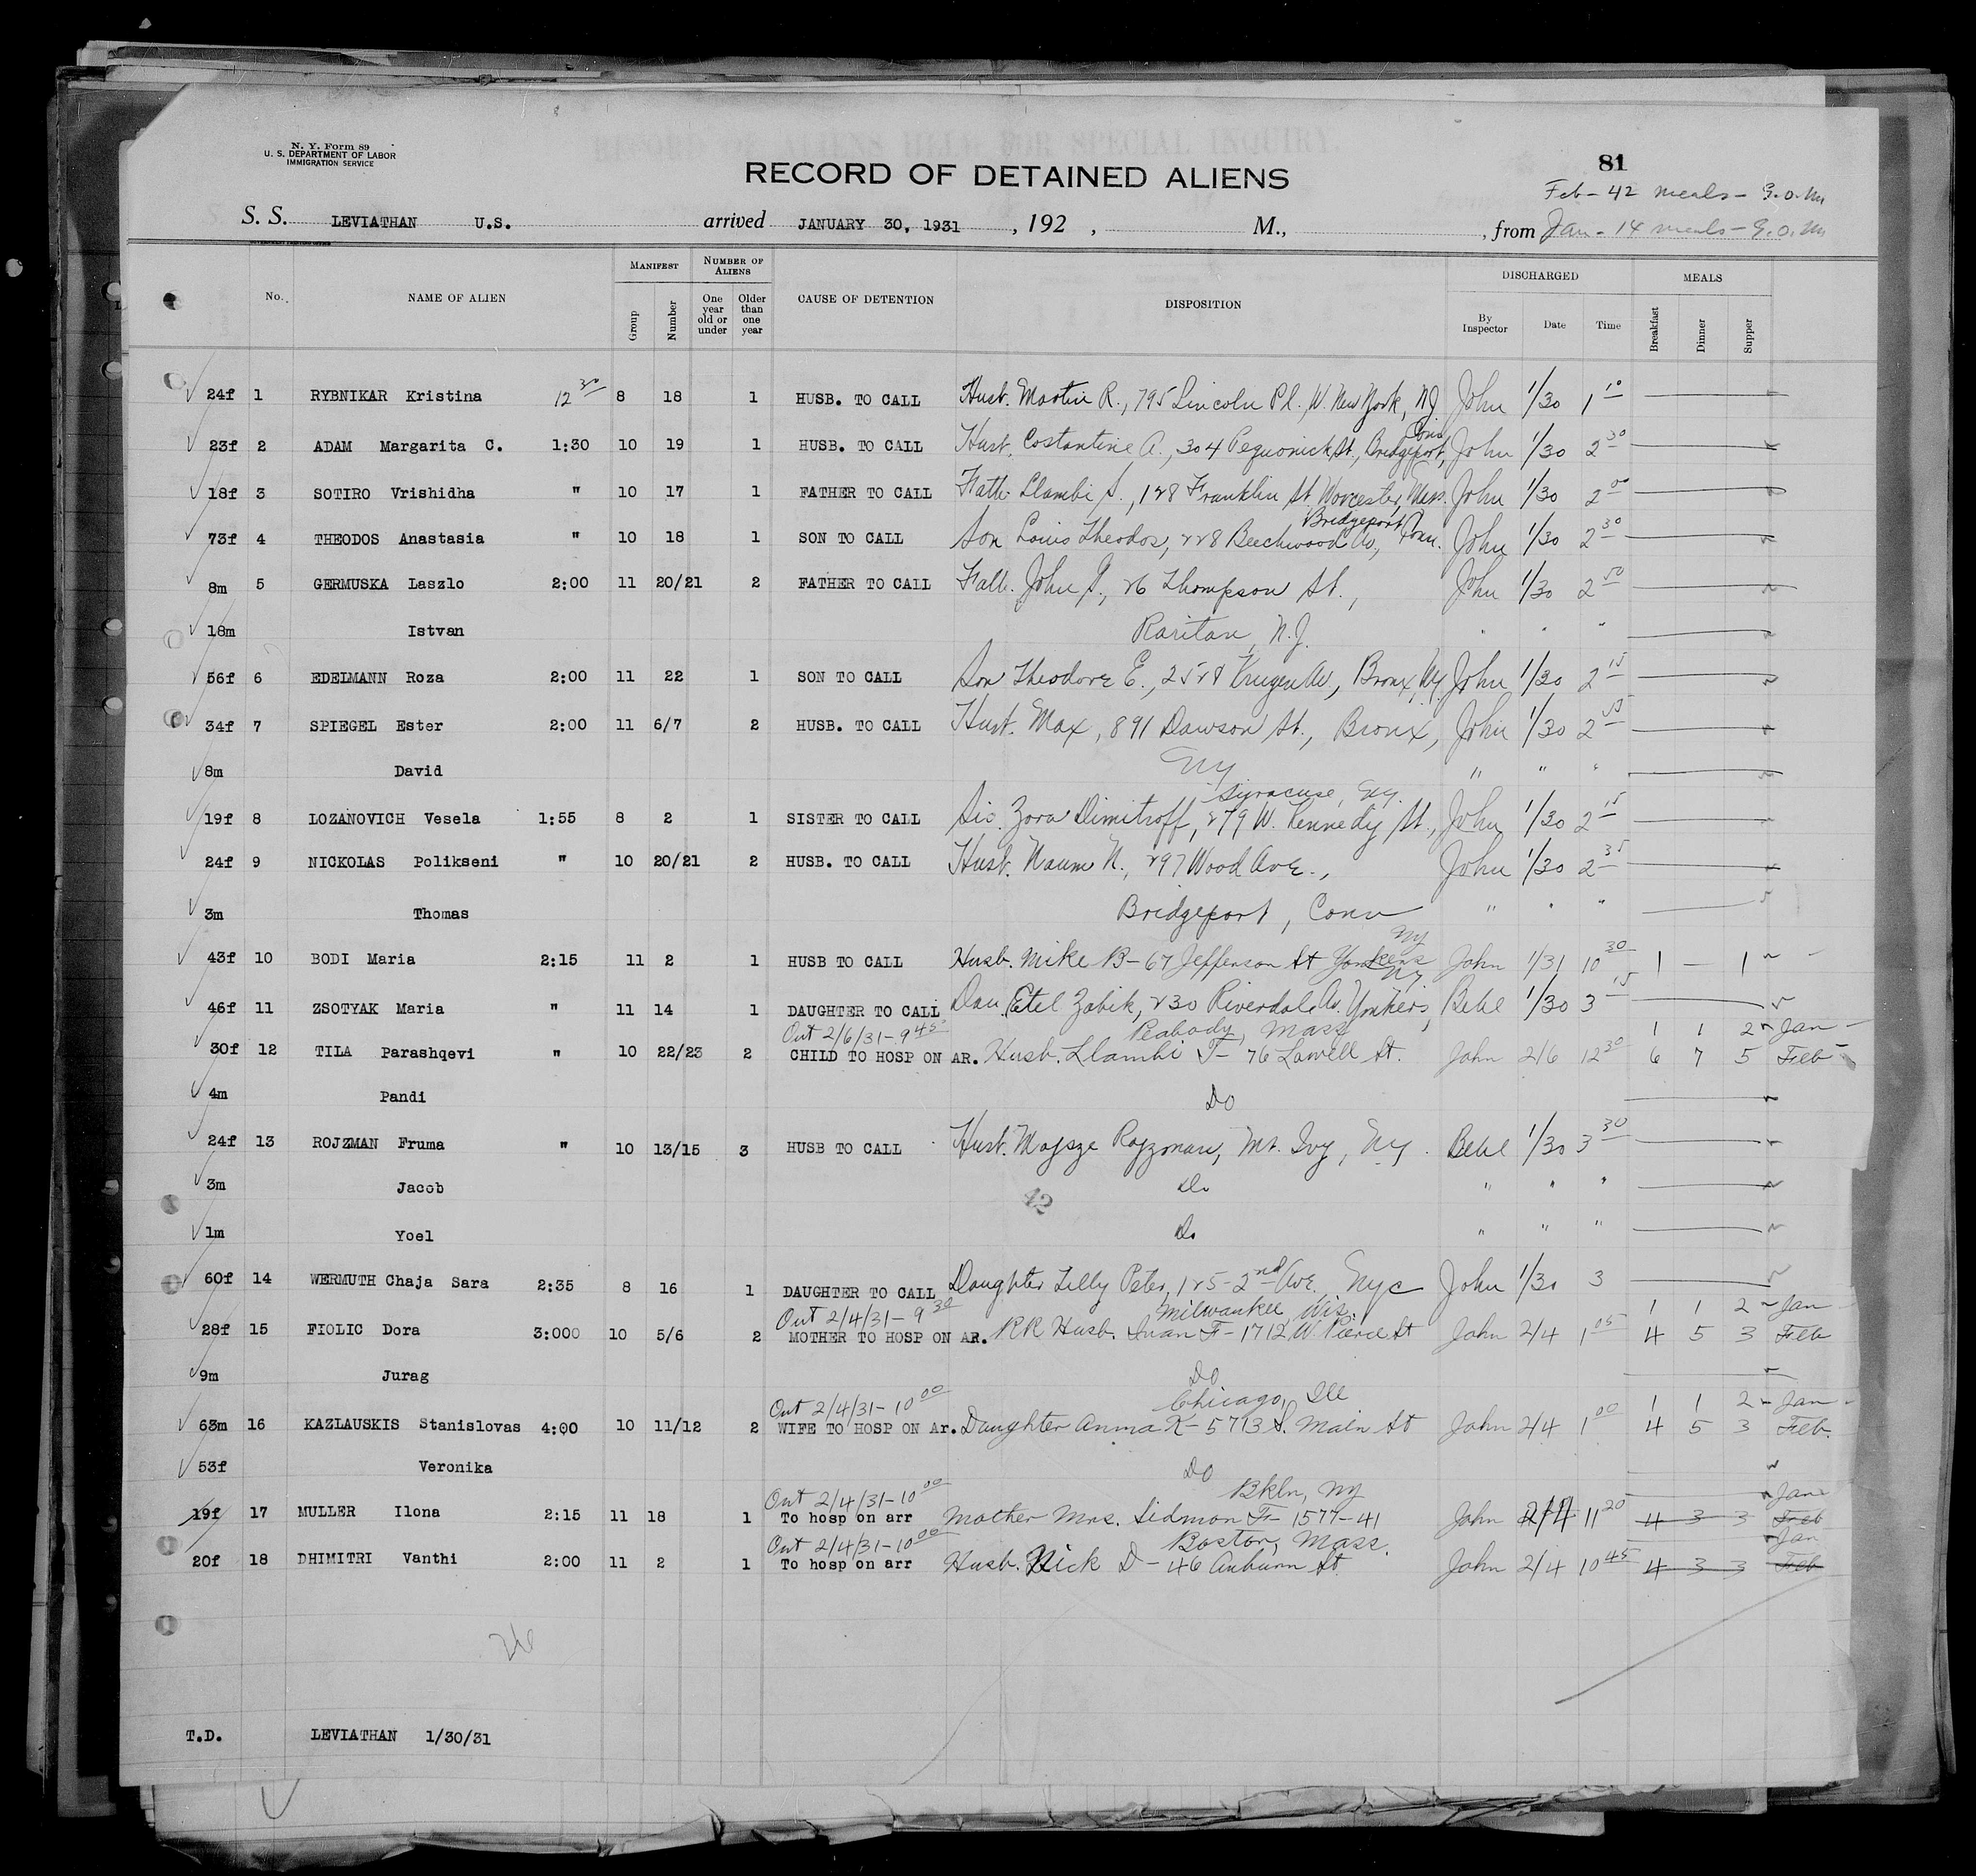 N. Y. Form 89
U. S. DEPARTMENT OF LABOR
IMMIGRATION SERVICE
RECORD OF ALIENS HELD FOR SPECIAL INQUIRY.
RECORD OF DETAINED ALIENS
81
Feb - 42 meals - G.O.M.
S. S. LEVIATHAN U.S. arrived JANUARY 30, 1931, 192 , M., from Jan - 14 meals - G.O.M.
No. NAME OF ALIEN MANIFEST Group Number NUMBER OF ALIENS One year old or under Older than one year CAUSE OF DETENTION DISPOSITION DISCHARGED By Inspector Date Time MEALS Breakfast Dinner Supper
24f 1 RYBNIKAR Kristina 12 30 8 18 1 HUSB. TO CALL Husb. Martin R., 795 Lincoln Pl., W. New York, NJ. John 1/30 1 10
23f 2 ADAM Margarita C. 1:30 10 19 1 HUSB. TO CALL Husb. Costantine A., 304 Pequonick St., Bridgeport, Conn John 1/30 2 30
18f 3 SOTIRO Vrishidha " 10 17 1 FATHER TO CALL Fath. Llambi S., 128 Franklin St Worcester, Mass. John 1/30 2 00
73f 4 THEODOS Anastasia " 10 18 1 SON TO CALL Son Louis Theodos, 228 Beechwood Av, Bridgeport Conn. John 1/30 2 30
8m 5 GERMUSKA Laszlo 2:00 11 20/21 2 FATHER TO CALL Fath. John G., 26 Thompson St., John 1/30 2 50
18m Istvan Raritan, N.J. " " "
56f 6 EDELMANN Roza 2:00 11 22 1 SON TO CALL Son Theodore E., 2528 Av, Bronx, Ny John 1/30 2 15
34f 7 SPIEGEL Ester 2:00 11 6/7 2 HUSB. TO CALL Husb. Max, 891 Dawson St., Bronx, John 1/30 2
8m David Ny " " "
19f 8 LOZANOVICH Vesela 1:55 8 2 1 SISTER TO CALL Sis. Zora Dimitroff, 279 W. Kennedy St., Syracuse, Ny. John 1/30 2 15
24f 9 NICKOLAS Polikseni " 10 20/21 2 HUSB. TO CALL Husb. Naum N., 297 Wood Ave., John 1/30 2 35
3m Thomas Bridgeport, Conn " " "
43f 10 BODI Maria 2:15 11 2 1 HUSB TO CALL Husb. Mike B- 67 Jefferson St Yonkers Ny John 1/31 10 30 1 — 1
46f 11 ZSOTYAK Maria " 11 14 1 DAUGHTER TO CALL Dau. Etel Zabik, 230 Riverdale Av. Yonkers, Ny Bebe 1/30 3 15
Out 2/6/31 - 9 45 Peabody, Mass 1 1 2 Jan -
30f 12 TILA Parashqevi " 10 22/23 2 CHILD TO HOSP ON AR. Husb. Llambi T- 76 Lowell St. John 2/6 12 30 6 7 5 Feb -
4m Pandi Do
24f 13 ROJZMAN Fruma " 10 13/15 3 HUSB TO CALL Husb. Mojsze Rojzman, Mt. Ivy, Ny. Bebe 1/30 3 30
3m Jacob Do " " "
42
1m Yoel Do " " "
60f 14 WERMUTH Chaja Sara 2:35 8 16 1 DAUGHTER TO CALL Daughter Lilly Peter, 125 - 2nd Ave. Nyc John 1/30 3
Out 2/4/31 - 9 30 Milwaukee, Wis. 1 1 2 Jan -
28f 15 FIOLIC Dora 3:000 10 5/6 2 MOTHER TO HOSP ON AR. RR Husb. Ivan F - 1712 W. Pierce St John 2/4 1 05 4 5 3 Feb
9m Jurag Do
Out 2/4/31 - 10 00 Chicago, Ill 1 1 2 - Jan -
63m 16 KAZLAUSKIS Stanislovas 4:00 10 11/12 2 WIFE TO HOSP ON Ar. Daughter Anna K - 5713 S. Main St John 2/4 1 00 4 5 3 Feb.
53f Veronika Do
Out 2/4/31 - 10 00 Bkln, Ny Jan
19f 17 MULLER Ilona 2:15 11 18 1 To hosp on arr Mother Mrs. Sidmon F - 1577 - 41 John 2/4 11 20 4 3 3 Feb
Out 2/4/31 - 10 00 Boston, Mass. Jan
20f 18 DHIMITRI Vanthi 2:00 11 2 1 To hosp on arr Husb. Nick D - 46 Auburn St. John 2/4 10 45 4 3 3 Feb
26
T.D. LEVIATHAN 1/30/31